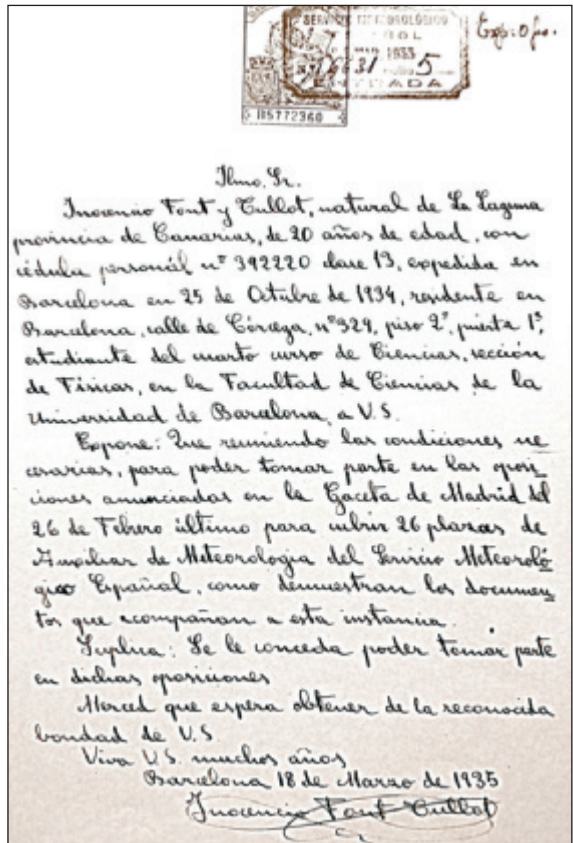 SERVICIO METEOROLÓGICO
ESPAÑOL
5
ENTRADA
B5772360
Ilmo. Sr.
Inocencio Font y Tullot, natural de La Laguna
provincia de Canarias, de 20 años de edad, con
cédula personál nº 392220 clase 13, expedida en
Barcelona en 25 de Octubre de 1934, residente en
Barcelona, calle de Córcega, nº 329, piso 2º, puerta 1ª,
estudiante del cuarto curso de Ciencias, sección
de Físicas, en la Facultad de Ciencias de la
Universidad de Barcelona, a V.S.
Expone: Que reuniendo las condiciones ne
cesarias, para poder tomar parte en las oposi
ciones anunciadas en la Gaceta de Madrid del
26 de Febrero último para cubrir 26 plazas de
Auxiliar de Meteorologia del Servicio Meteoroló
gico Español, como demuestran los documen
tos que acompañan a esta instancia.
Suplica: Se le conceda poder tomar parte
en dichas oposiciones
Merced que espera obtener de la reconocida
bondad de V.S.
Viva V.S. muchos años
Barcelona 18 de Marzo de 1935
Inocencio Font Tullot